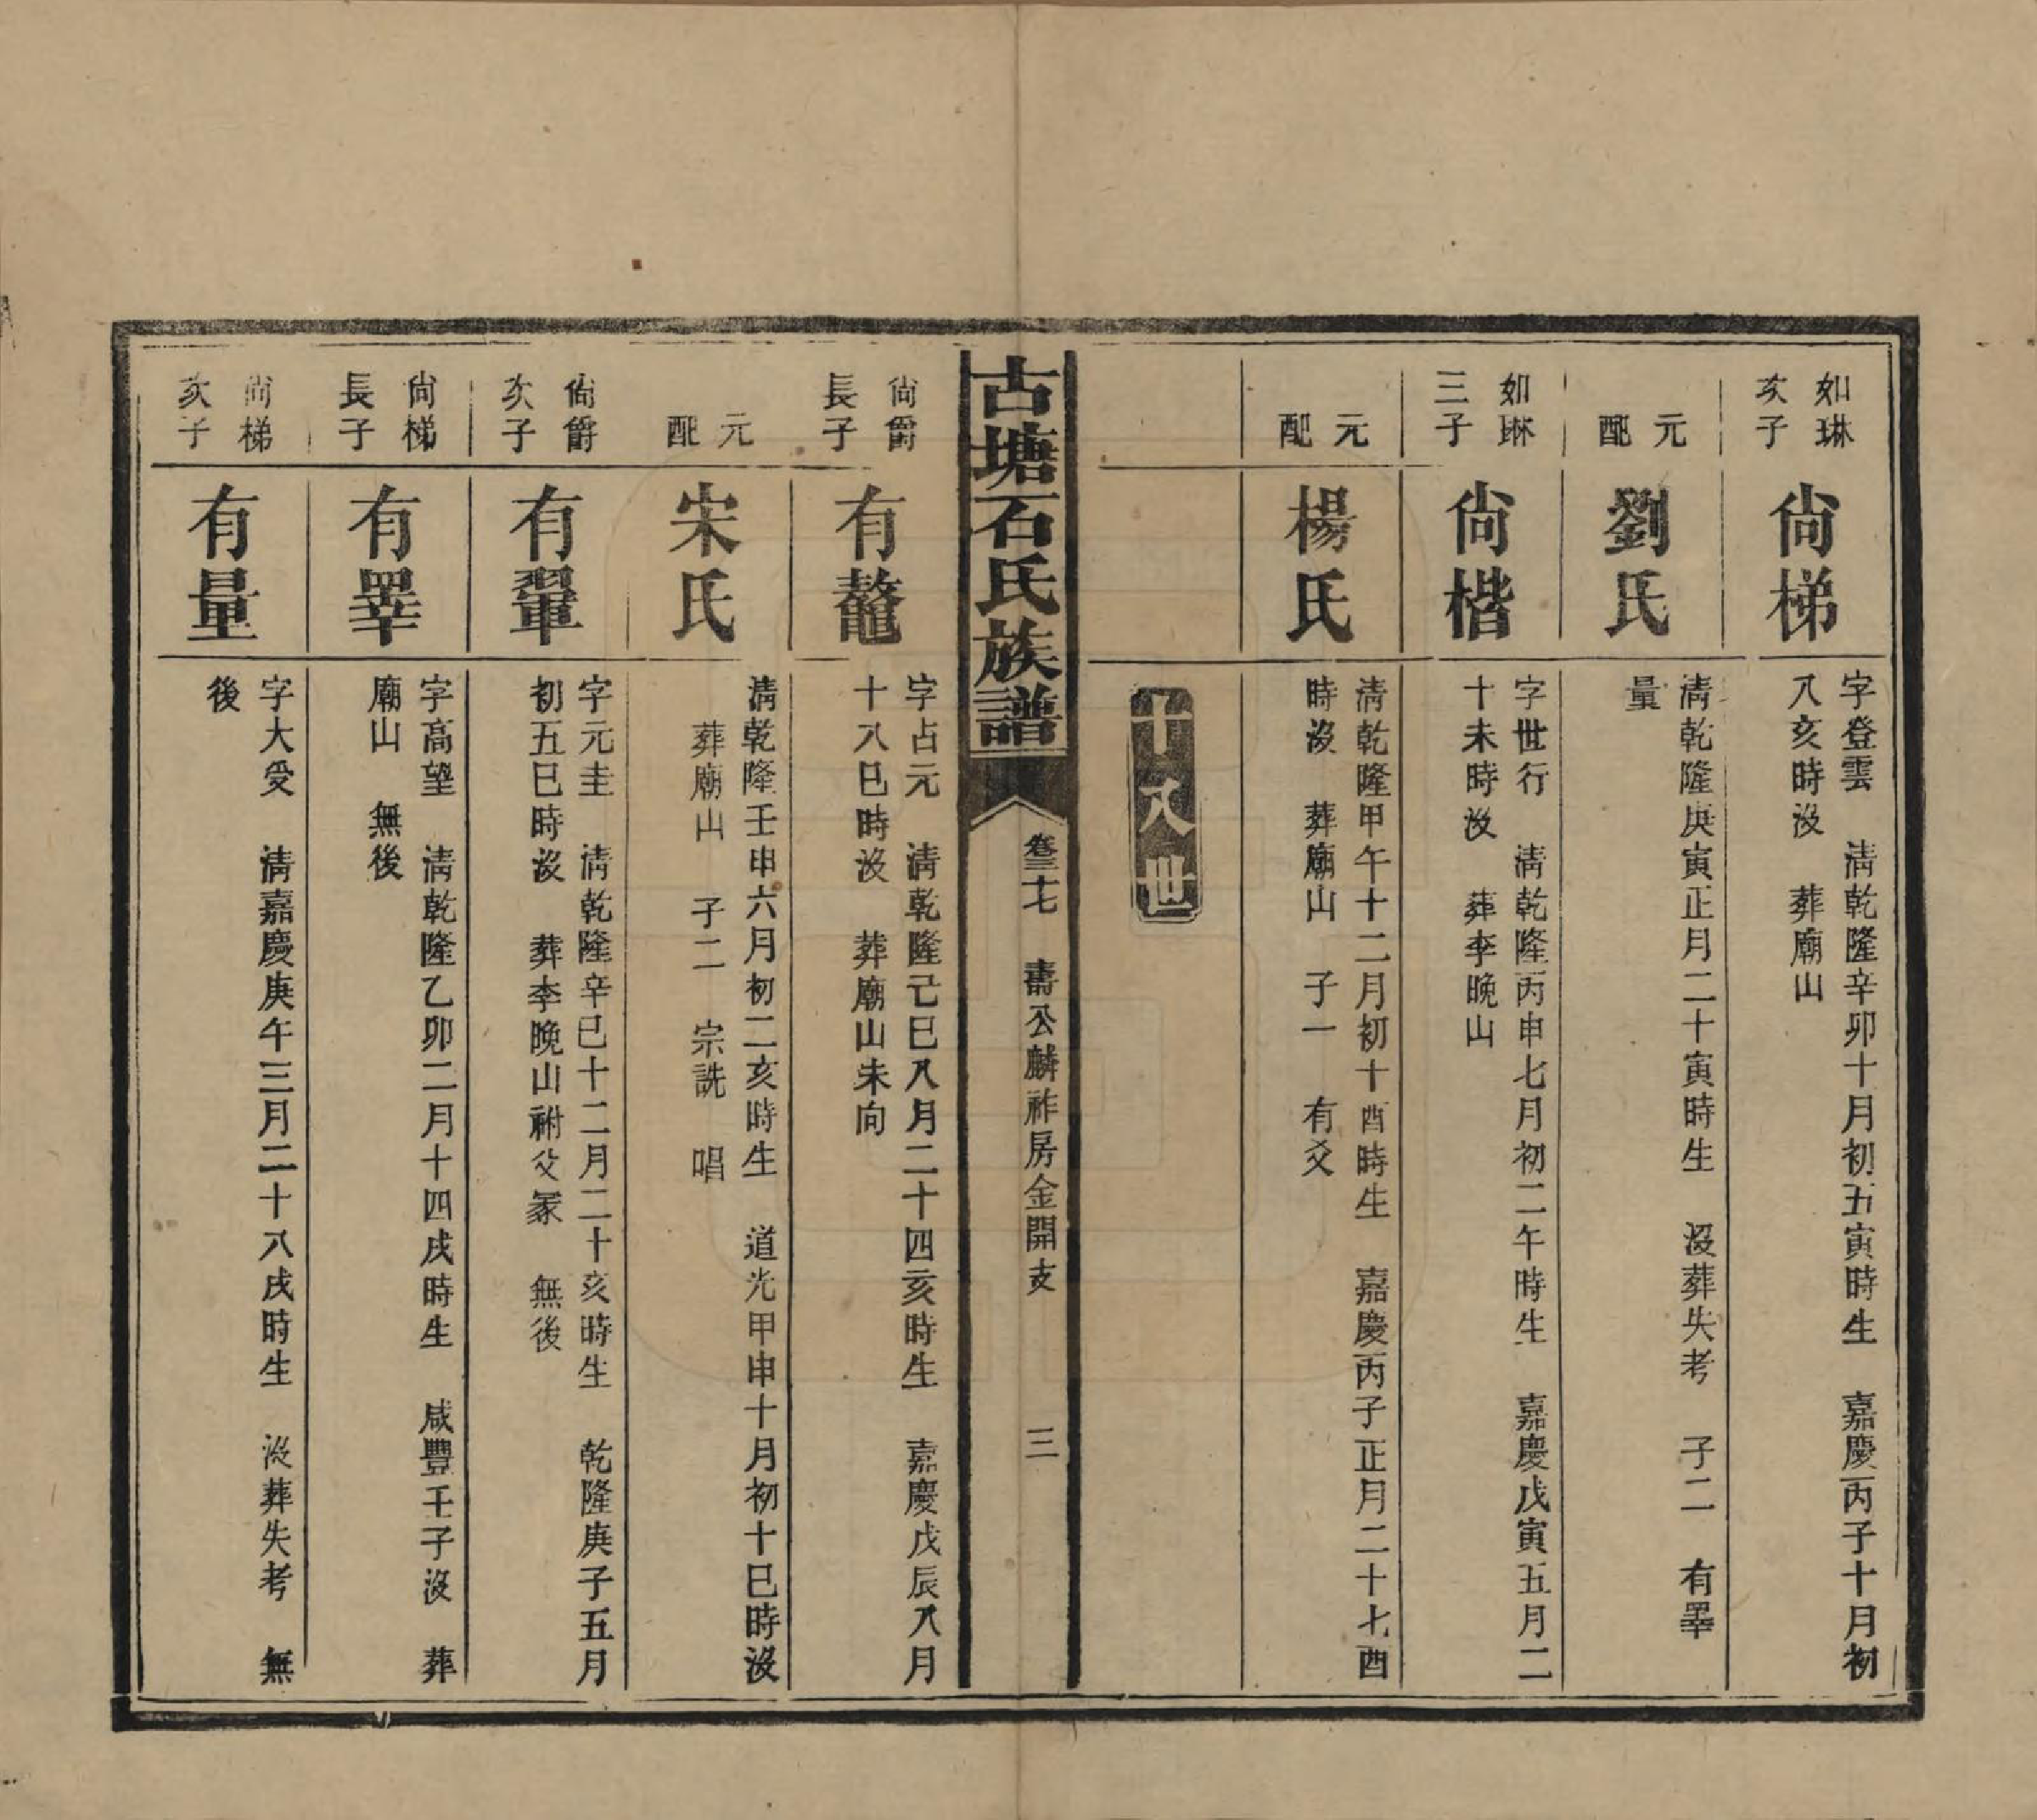 如琳
次子
尙梯
字登雲　淸乾隆辛卯十月初五寅時生　嘉慶丙子十月初
八亥時沒　葬廟山
元
配
劉氏
淸乾隆庚寅正月二十寅時生　沒葬失考　子二　有睪
量
如琳
三子
尙楷
字世行　淸乾隆丙申七月初二午時生　嘉慶戊寅五月二
十未時沒　葬李晚山
元
配
楊氏
淸乾隆甲午十二月初十酉時生　嘉慶丙子正月二十七酉
時沒　葬廟山　子一　有爻
十八世
古塘石氏族譜
卷三十七　壽公麟祚房金開支
三
尙爵
長子
有鼇
字占元　淸乾隆己巳八月二十四亥時生　嘉慶戊辰八月
十八巳時沒　葬廟山未向
元
配
宋氏
淸乾隆壬申六月初二亥時生　道光甲申十月初十巳時沒
葬廟山　子二　宗詵　唱
尙爵
次子
有翬
字元圭　淸乾隆辛巳十二月二十亥時生　乾隆庚子五月
初五巳時沒　葬李晚山祔父冢　無後
尙梯
長子
有睪
字高望　淸乾隆乙卯二月十四戌時生　咸豐壬子沒　葬
廟山　無後
尙梯
次子
有量
字大受　淸嘉慶庚午三月二十八戌時生　沒葬失考　無
後